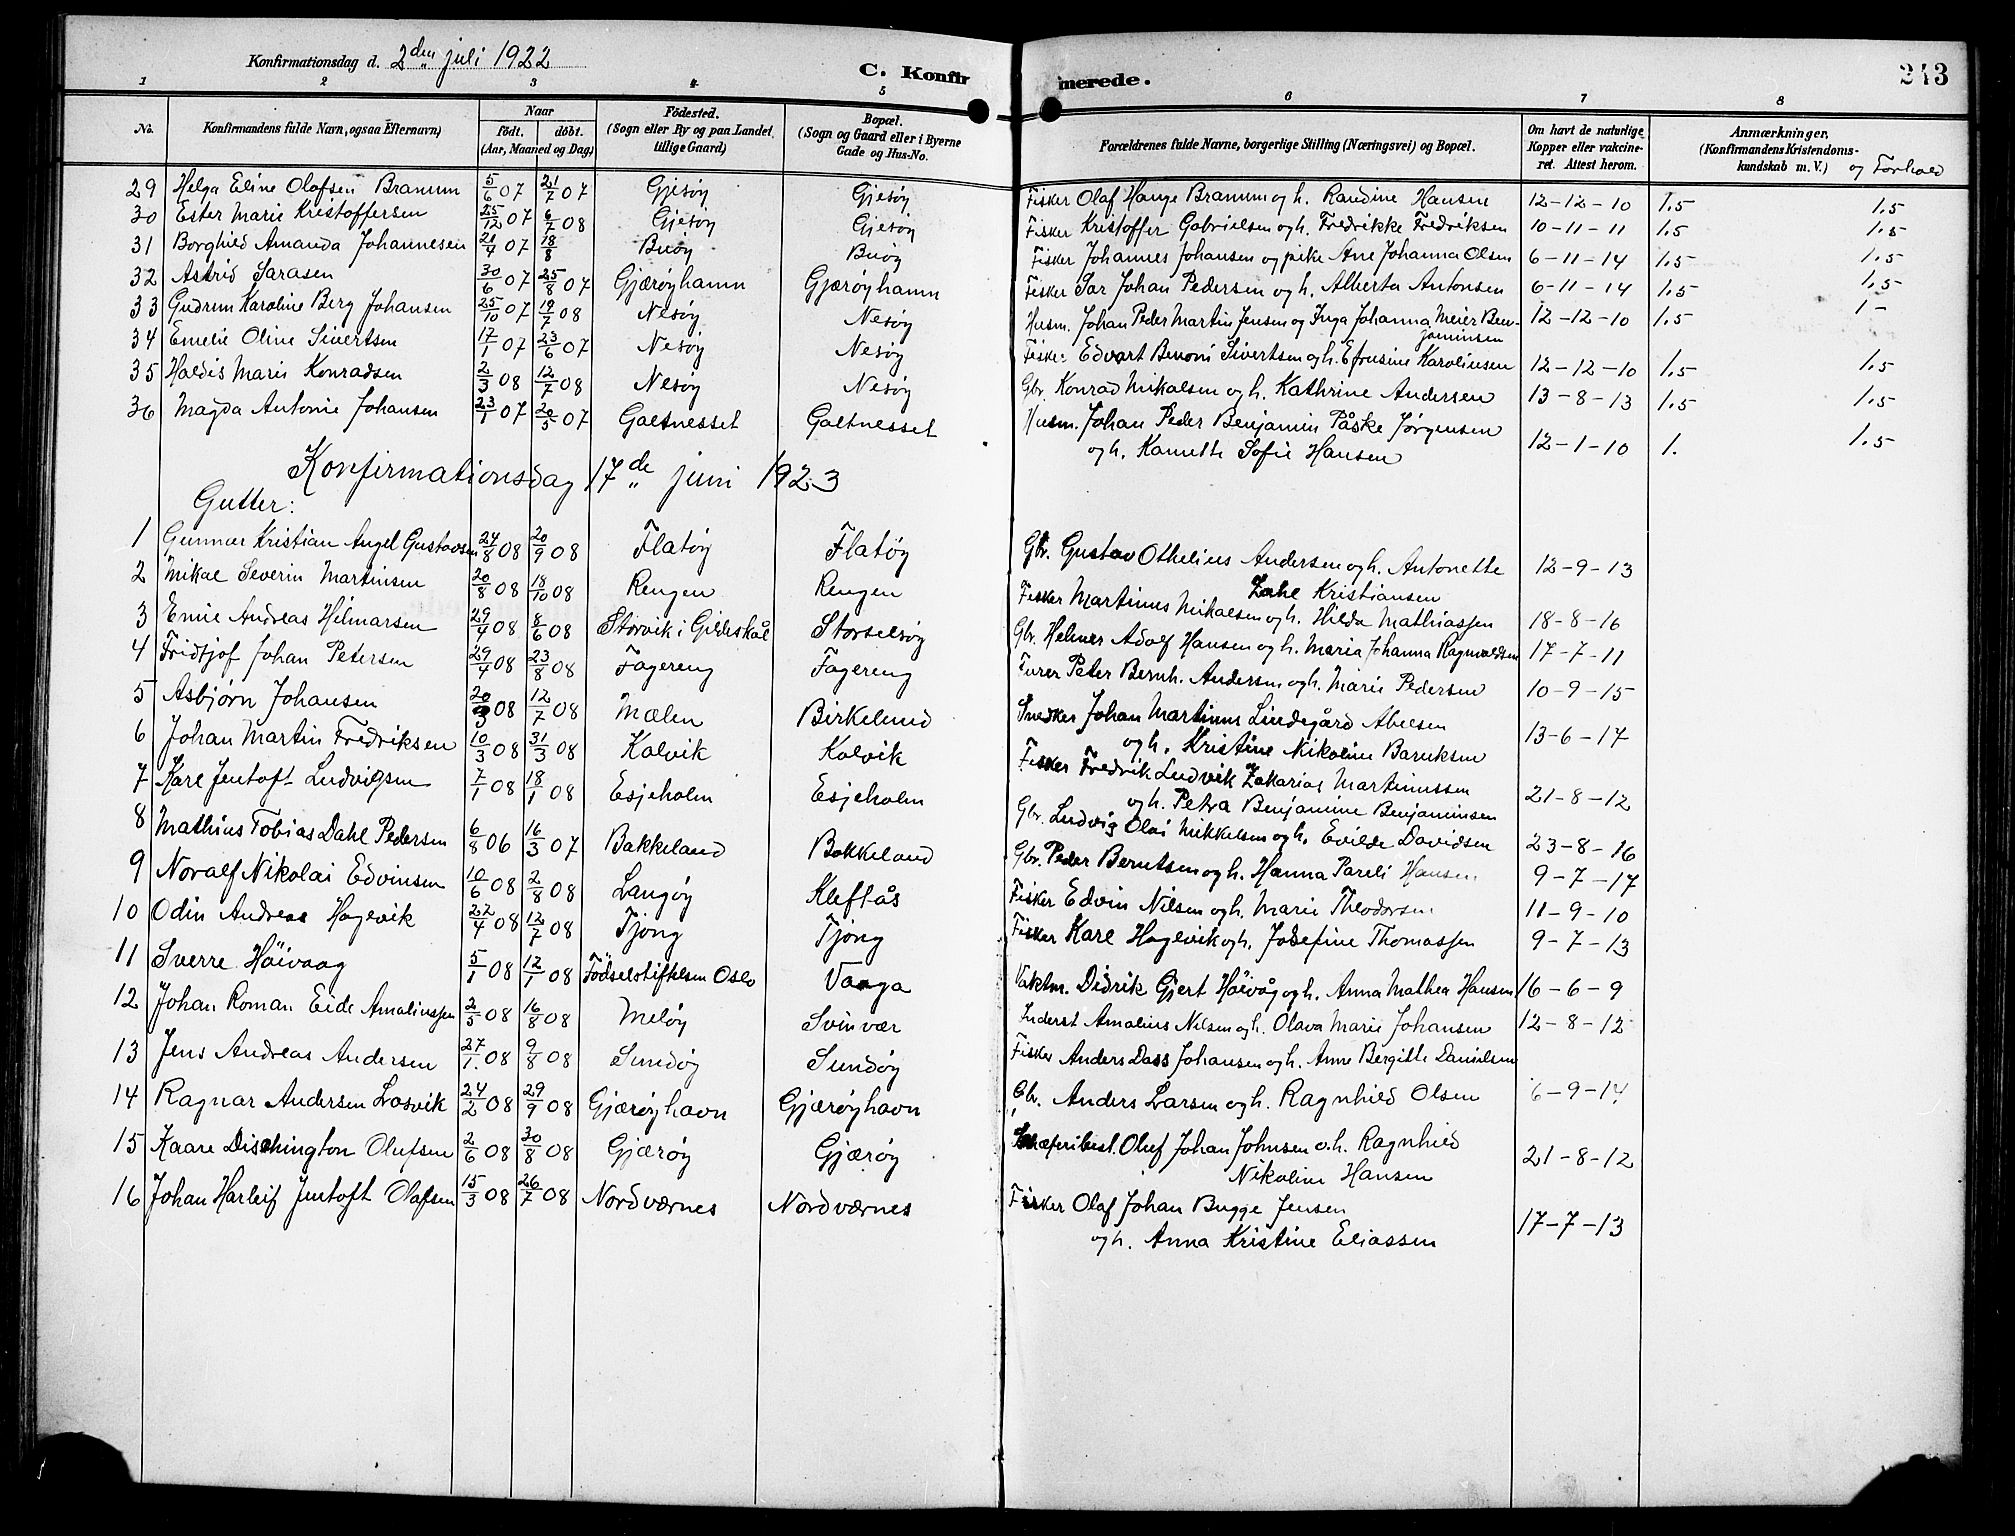 Konfirmationsdag d. 2den juli 1922
C. Konfirmerede.
243
1 2 3 4 5 6 7 8
No.
Konfirmandens fulde Navn, ogsaa Efternavn)
Naar
födt. döbt.
(Aar, Maaned og Dag)
Födested.
(Sogn eller By og paa Landet tillige Gaard)
Bopæl.
(Sogn og Gaard eller i Byerne Gade og Hus-No.
Forældrenes fulde Navne, borgerlige Stilling (Næringsvei) og Bopæl.
Om havt de naturlige Kopper eller vakcineret. Attest herom.
Anmærkninger.
(Konfirmandens Kristendomskundskab m. V.) og Forhold
29 Helga Eline Olafsen Bramm 5/6 07 21/7 07 Gjesøy Gjesøy Fisker Olaf Hange Bramm og h. Randine Hansen 12-12-10 1.5 1.5
30 Ester Marie Kristoffersen 25/12 07 6/7 08 Gjesøy Gjesøy Fisker Kristoffer Gabrielsen og h. Fredrikke Fredriksen 10-11-11 1.5 1.5
31 Borghild Amanda Johannesen 21/4 07 18/8 Buøy Buøy Fisker Johannes Johansen og pike Ane Johanna Olsen 6-11-14 1.5 1.5
32 Astrid Sarasen 30/6 07 25/8 07 Gjærøyhamn Gjærøyhamn Fisker Sar Johan Pedersen og h. Alberta Antonsen 6-11-14 1.5 1.5
33 Gudrun Karoline Berg Johansen 25/10 07 19/7 08 Nesøy Nesøy Husm. Johan Peder Martin Jensen og Inga Johanna Meier Ben-
jaminsen 12-12-10 1.5 1-
34 Emelie Oline Sivertsen 17/1 07 23/6 07 Nesøy Nesøy Fisker Edvart Benoni Sivertsen og h. Efrosine Karolinsen 12-12-10 1.5 1.5
35 Haldis Marie Konradsen 2/3 08 12/7 08 Nesøy Nesøy Gbr. Konrad Mikalsen og h. Kathrine Andersen 13-8-13 1.5 1.5
36 Magda Antonie Johansen 23/1 07 20/5 07 Galtnesset Galtnesset Husm. Johan Peder Benjamin Påske Jørgensen
og h. Kanutte Sofie Hansen 12-1-10 1. 1.5
Konfirmationsdag 17de juni 1923
Gutter:
1 Gunnar Kristian Angel Gustavsen 24/8 08 20/9 08 Flatøy Flatøy Gbr. Gustav Othelius Andersen og h. Antonette
Zahl Kristiansen 12-9-13
2 Mikal Severin Martinsen 20/8 08 18/10 08 Rengen Rengen Fisker Martinus Mikalsen og h. Hilda Mathiassen 18-8-16
3 Emil Andreas Hilmarsen 29/4 08 8/6 08 Storvik i Gildeskål Storselsøy Gbr. Helmer Adolf Hansen og h. Maria Johanna Ragnvaldsen 17-7-11
4 Fridtjof Johan Petersen 29/4 08 23/8 08 Fagereng Fagereng Furer Peter Bernh. Andersen og h. Marie Pedersen 10-9-15
5 Asbjørn Johansen 20/3 08 12/7 08 Mælen Birkelund Snedker Johan Martinus Lindegård Abelsen
og h. Kristine Nikoline Baruksen 13-6-17
6 Johan Martin Fredriksen 10/3 08 31/3 08 Kalvik Kalvik Fisker Fredrik Ludvik Zakarias Martinussen
og h. Petra Benjamine Benjaminsen 21-8-12
7 Karl Jentoft Ludvigsen 7/1 08 18/1 08 Esjeholm Esjeholm Gbr. Ludvig Olai Mikkelsen og h. Evilde Davidsen 23-8-16
8 Mathias Tobias Dahl Pedersen 6/8 06 16/3 07 Bakkeland Bakkeland Gbr. Peder Berntsen og h. Hanna Pareli Hansen 9-7-17
9 Noralf Nikolai Edvinsen 10/6 08 2/8 08 Langøy Kleftås Fisker Edvin Nilsen og h. Marie Theodorsen 11-9-10
10 Odin Andreas Hagevik 22/4 08 12/7 08 Tjong Tjong Fisker Karl Hagevik og h. Josefine Thomassen 9-7-13
11 Sverre Höivaag 5/1 08 12/1 08 Födselstiftelsen Oslo Vaaga Vaktm. Didrik Gjert Höivåg og h. Anna Mathea Hansen 16-6-9
12 Johan Roman Eide Amaliussen 2/5 08 16/8 08 Meløy Svinvær Inderst Amalius Nilsen og h. Olava Marie Johansen 12-8-12
13 Jens Andreas Andersen 27/1. 08 9/8 08 Sundøy Sundøy Fisker Anders Dass Johansen og h. Anne Bergitte Danielsen
14 Ragnar Andersen Losvik 24/2 08 29/9 08 Gjærøyhavn Gjærøyhavn Gbr. Anders Larsen og h. Ragnhild Olsen 6-9-14
15 Kaare Dischington Olufsen 2/6 08 30/8 08 Gjærøy Gjærøy Oluf Johan Johnsen o.h. Ragnhild
Nikoline Hansen 21-8-12
16 Johan Harleif Jentoft Olafsen 15/3 08 26/7 08 Nordværnes Nordværnes Fisker Olaf Johan Bugge Jensen
og h. Anna Kristine Eliassen 17-7-13